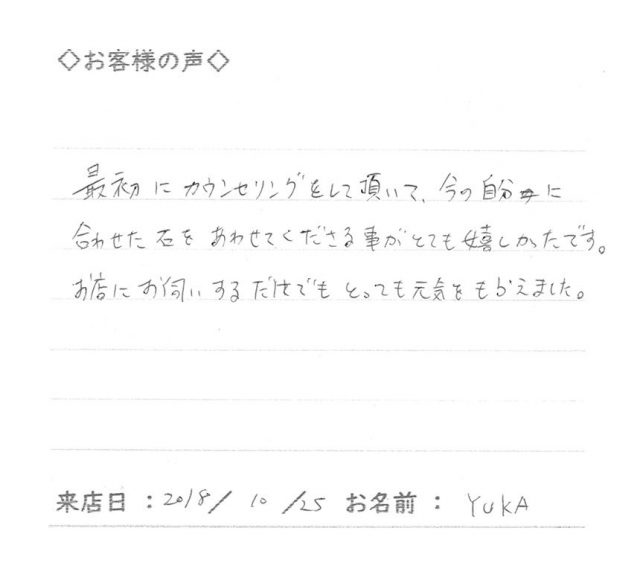 ◇お客様の声◇
最初にカウンセリングをして頂いて、今の自分に
合わせた石をあわせてくださる事がとても嬉しかったです。
お店にお伺いするだけでもとっても元気をもらえました。
来店日 : 2018/ 10 /25 お名前 : YUKA